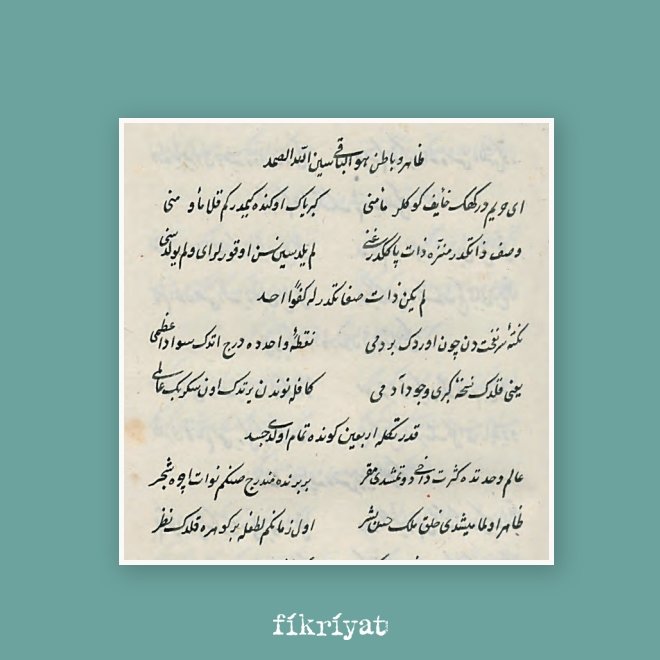 ظاهر و باطن هو الباقی سین الله الصمد
ای حریم درکهک خایف کوکلر مأمنی کبریاک اوکنده کیمدرکم قلا ما و منی
وصف ذاتکدر منزه ذات پاککدر غنی لم یلد سین سن اوقورلر ای ولم یولد سنی
لم یکن ذات صفاتکدر له کفوا احد
نکتهٔ سر نفخت دن چون اوردک بر دمی نقطهٔ واحده درج اتدک سواد اعظمی
یعنی قلدک نسخهٔ کبری وجود آدمی کافله نوندن یرتدک اون سکز بیک عالمی
قدرتکله اربعین کونده تمام اولدی جسد
عالم وحدتده کثرت داخی دوتمشدی مقر بربرنده مندرج صنکم نوات ایچره شجر
ظاهر اولمامیشدی خلق ملک حسن بشر اول زمانکم لطفله بر کوهره قلدک نظر
fikriyat